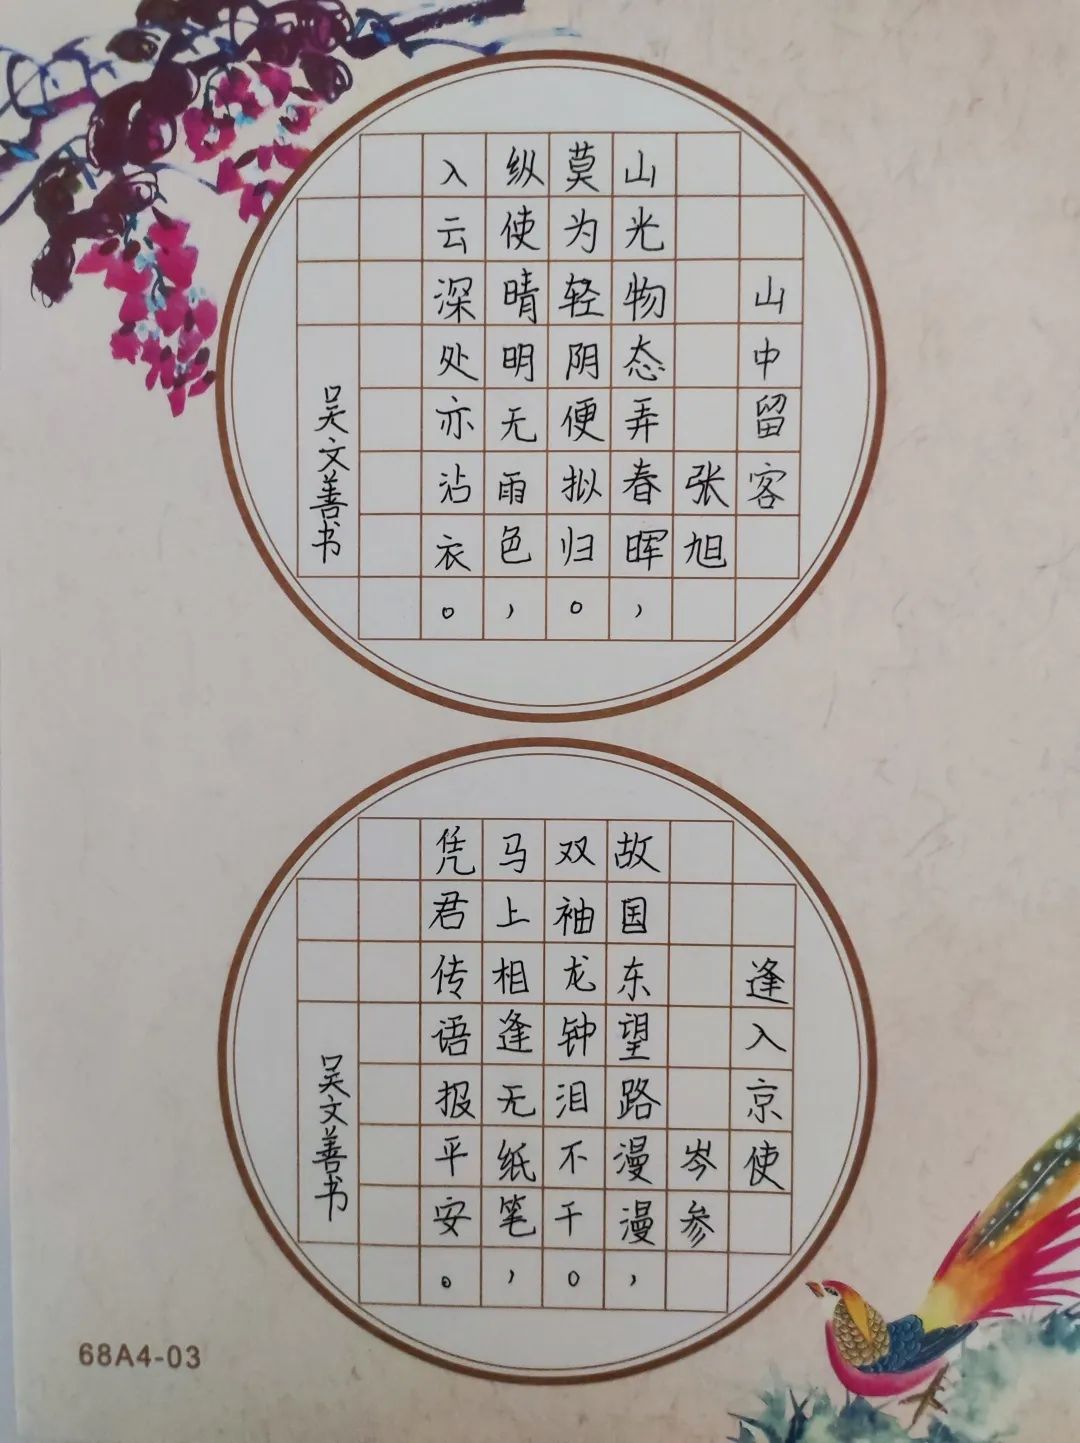 山中留客
张旭
山光物态弄春晖，
莫为轻阴便拟归。
纵使晴明无雨色，
入云深处亦沾衣。
吴文善书
逢入京使
岑参
故国东望路漫漫，
双袖龙钟泪不干。
马上相逢无纸笔，
凭君传语报平安。
吴文善书
68A4-03